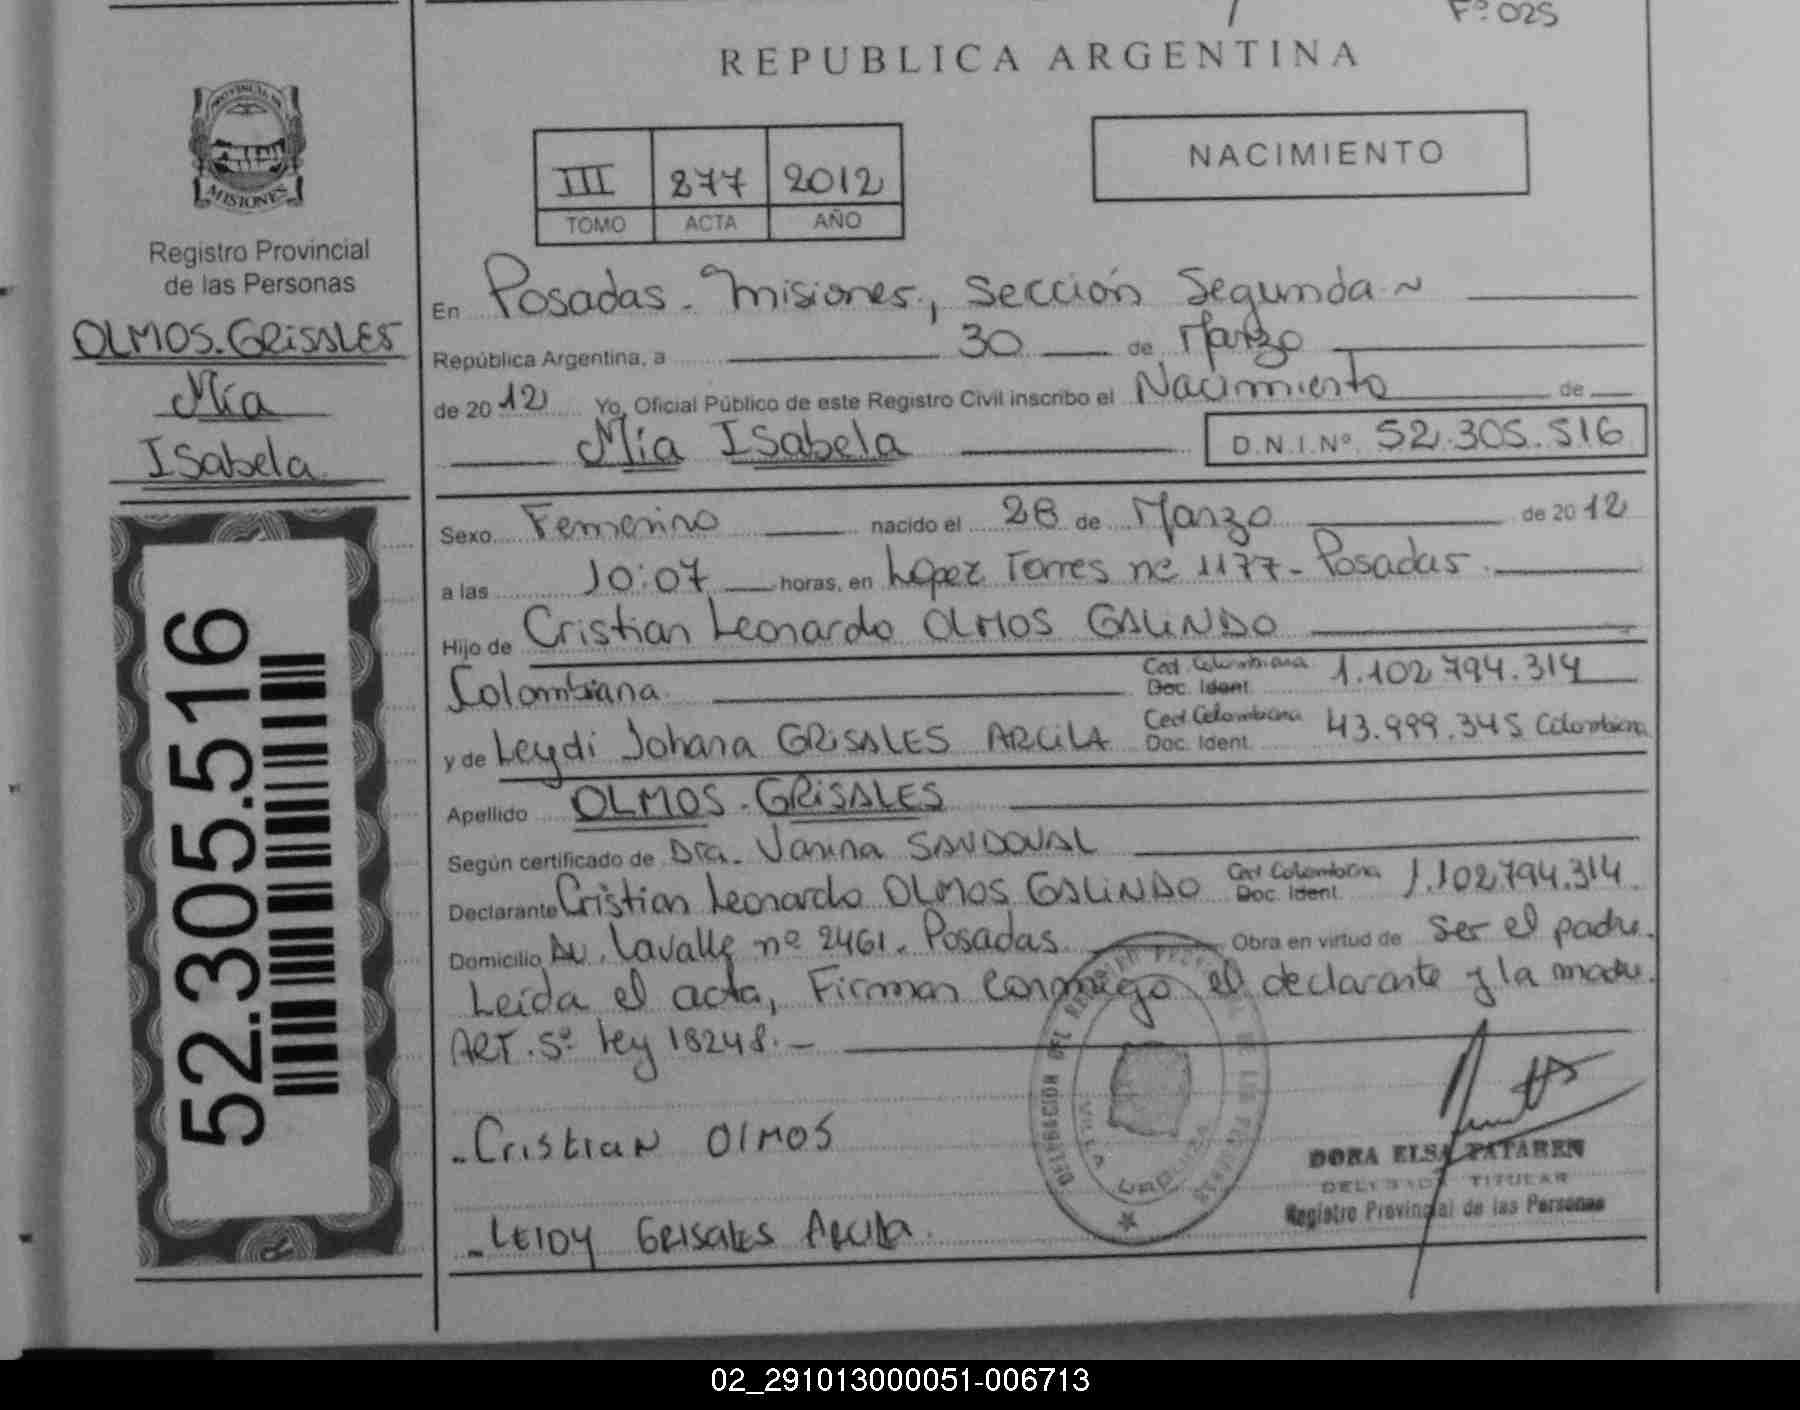 Fº 025
REPUBLICA ARGENTINA
PROVINCIA DE
MISIONES
Registro Provincial
de las Personas
OLMOS.GRISALES
Mía
Isabela
52.305.516
III 277 2012
TOMO ACTA AÑO
NACIMIENTO
En Posadas - Misiones, Sección Segunda
República Argentina, a 30 de Marzo
de 2012 Yo, Oficial Público de este Registro Civil inscribo el Nacimiento de
Mía Isabela D.N.I.Nº 52.305.516
Sexo Femenino nacido el 28 de Marzo de 2012
a las 10:07 horas, en López Torres nº 1177 - Posadas
Hijo de Cristian Leonardo OLMOS GALINDO
Colombiana Ced. Colombiana Doc. Ident. 1.102 794.314
y de Leydi Johana GRISALES ARCILA Ced Colombiana Doc. Ident. 43.999.345 Colombiana
Apellido OLMOS - GRISALES
Según certificado de Dra. Vanina SANDOVAL
Declarante Cristian Leonardo OLMOS GALINDO Ced Colombiana Doc. Ident. 1.102794.314.
Domicilio Av. Lavalle nº 2461. Posadas Obra en virtud de ser el padre.
Leída el acta, Firman conmigo el declarante y la madre.
ART. 5º Ley 18248.-
-Cristian Olmos
DELEGACION DEL REGISTRO PROVINCIAL DE LAS PERSONAS
VILLA URQUIZA
DORA ELSA TATAREN
DELEGADA TITULAR
Registro Provincial de las Personas
-LEIDY GRISALES ARCILA.
02_291013000051-006713